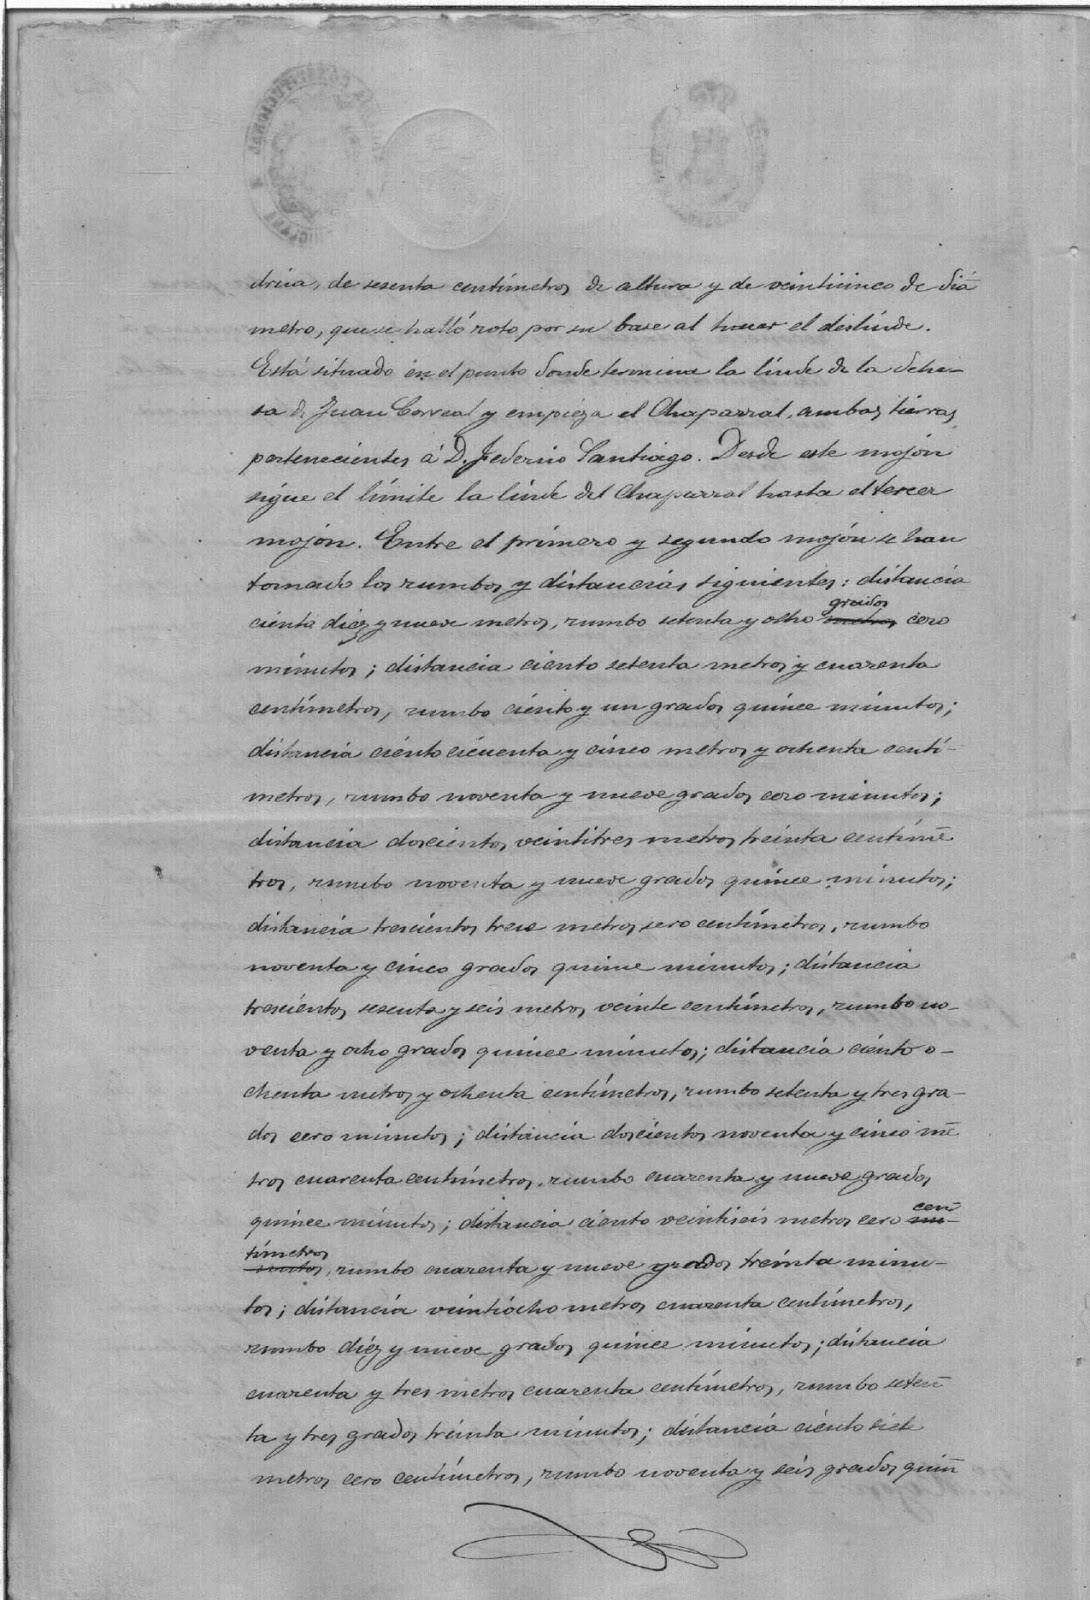 drica, de sesenta centímetros de altura y de veinticinco de diá
metro, que se halló roto por su base al hacer el deslinde.
Está situado en el punto donde termina la linde de la dehe-
sa de Juan Correal y empieza el Chaparral, ambas tierras
pertenecientes á D. Federico Santiago. Desde este mojón
sigue el límite la linde del Chaparral hasta el tercer
mojón. Entre el primero y segundo mojón se han
tomado los rumbos y distancias siguientes: distancia
ciento diez y nueve metros, rumbo setenta y ocho metros grados cero
minutos; distancia ciento setenta metros y cuarenta
centímetros, rumbo ciento y un grados quince minutos;
distancia ciento cicuenta y cinco metros y ochenta centí-
metros, rumbo noventa y nueve grados cero minutos;
distancia doscientos veintitres metros treinta centíme
tros, rumbo noventa y nueve grados quince minutos;
distancia trescientos trece metros sero centímetros, rumbo
noventa y cinco grados quince minutos; distancia
trescientos sesenta y seis metros veinte centímetros, rumbo no-
venta y ocho grados quince minutos; distancia ciento o-
chenta metros y ochenta centímetros, rumbo setenta y tres gra-
dos cero minutos; distancia doscientos noventa y cinco me
tros cuarenta centímetros, rumbo cuarenta y nueve grados
quince minutos; distancia ciento veintiseis metros cero mi- cen
nutos tímetros, rumbo cuarenta y nueve grados treinta minu-
tos; distancia veintiocho metros cuarenta centímetros,
rumbo diez y nueve grados quince minutos; distancia
cuarenta y tres metros cuarenta centímetros, rumbo seten
ta y tres grados treinta minutos; distancia ciento siete
metros cero centímetros, rumbo noventa y seis grados quin